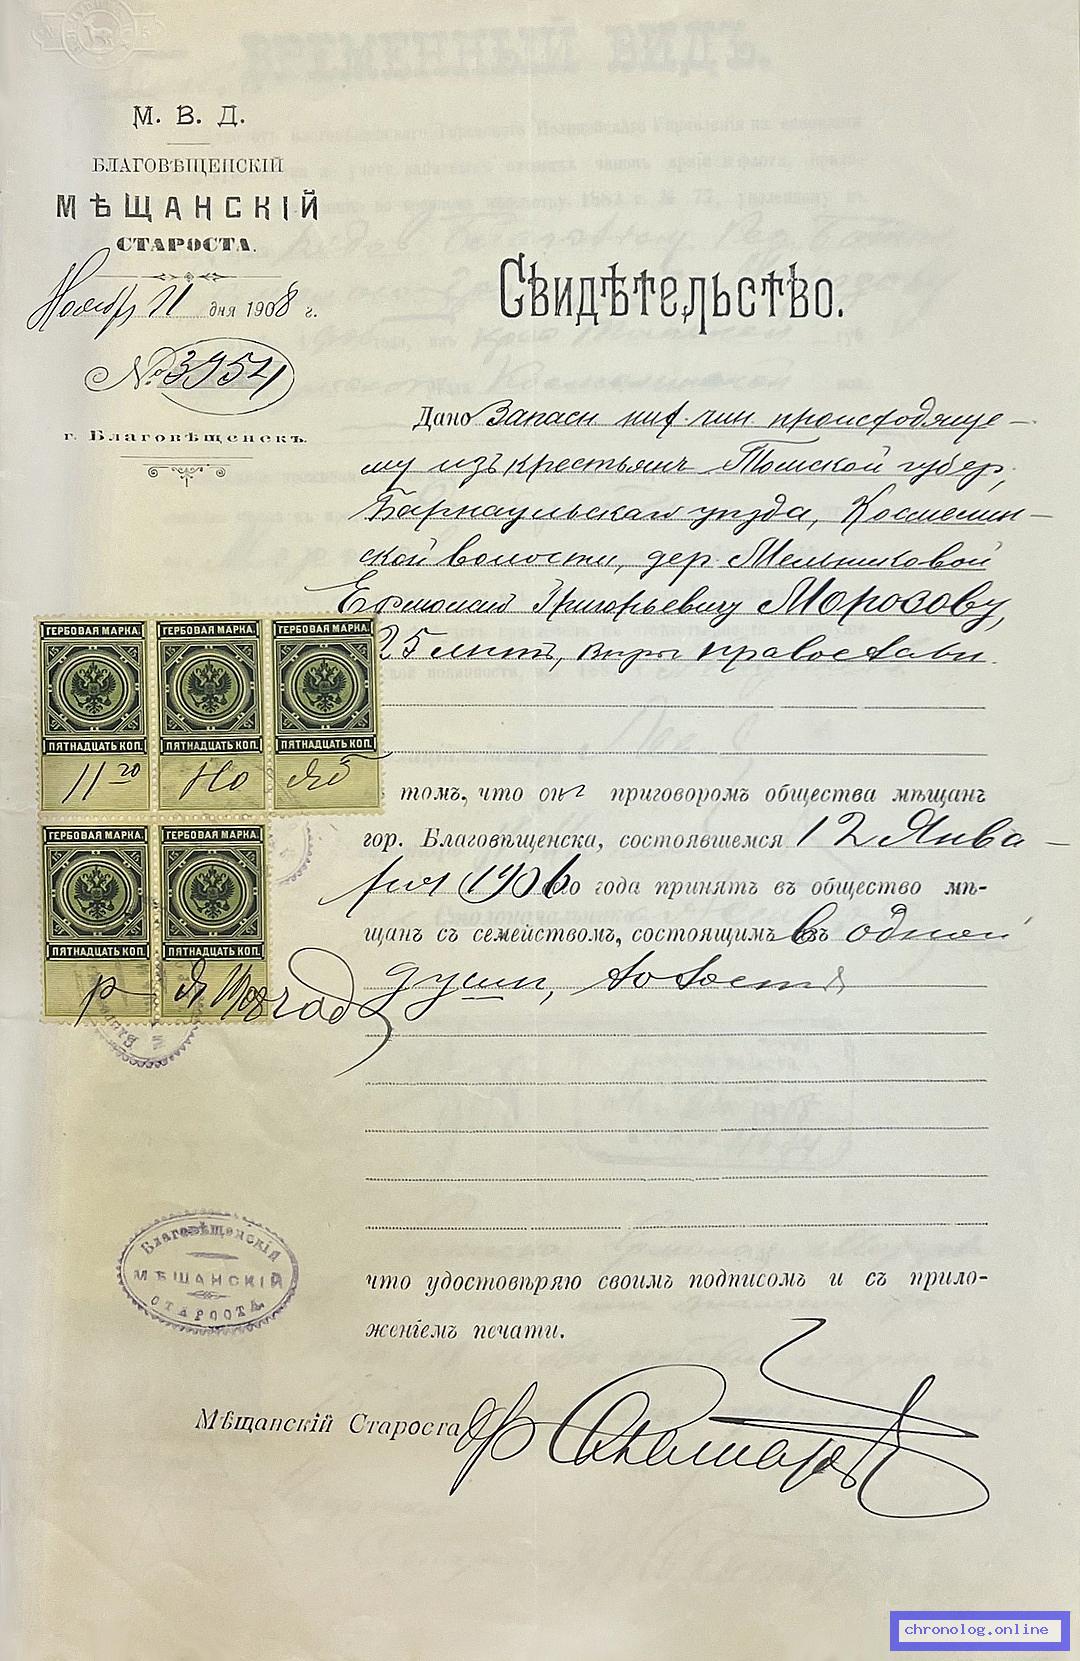 М. В. Д.
БЛАГОВѢЩЕНСКІЙ
МѢЩАНСКІЙ
СТАРОСТА.
Ноябр 11 дня 1908 г.
№ 3954
г. Благовѣщенскъ.
Свидѣтельство.
Дано Запасн. ниж. чин. происходяще-
му изъ крестьянъ Томской губер,
Барнаульскаго уѣзда, Косменин-
ской волости, дер. Мельниковой
Григорьевичу Морозову,
25 лѣтъ, вѣры православн.
томъ, что онъ приговоромъ общества мѣщанъ
гор. Благовѣщенска, состоявшемся 12 Янва-
ря 1906 го года принятъ въ общество мѣ-
щанъ съ семействомъ, состоящимъ въ одной
душѣ,
ГЕРБОВАЯ МАРКА. ГЕРБОВАЯ МАРКА. ГЕРБОВАЯ МАРКА.
ПЯТНАДЦАТЬ КОП. ПЯТНАДЦАТЬ КОП. ПЯТНАДЦАТЬ КОП.
11 го Но яб
ГЕРБОВАЯ МАРКА. ГЕРБОВАЯ МАРКА.
ПЯТНАДЦАТЬ КОП. ПЯТНАДЦАТЬ КОП.
р я 1908 года
Благовѣщенскій
МѢЩАНСКІЙ
СТАРОСТА.
что удостовѣряю своимъ подписомъ и съ прило-
женіемъ печати.
Мѣщанскій Староста
chronolog.online